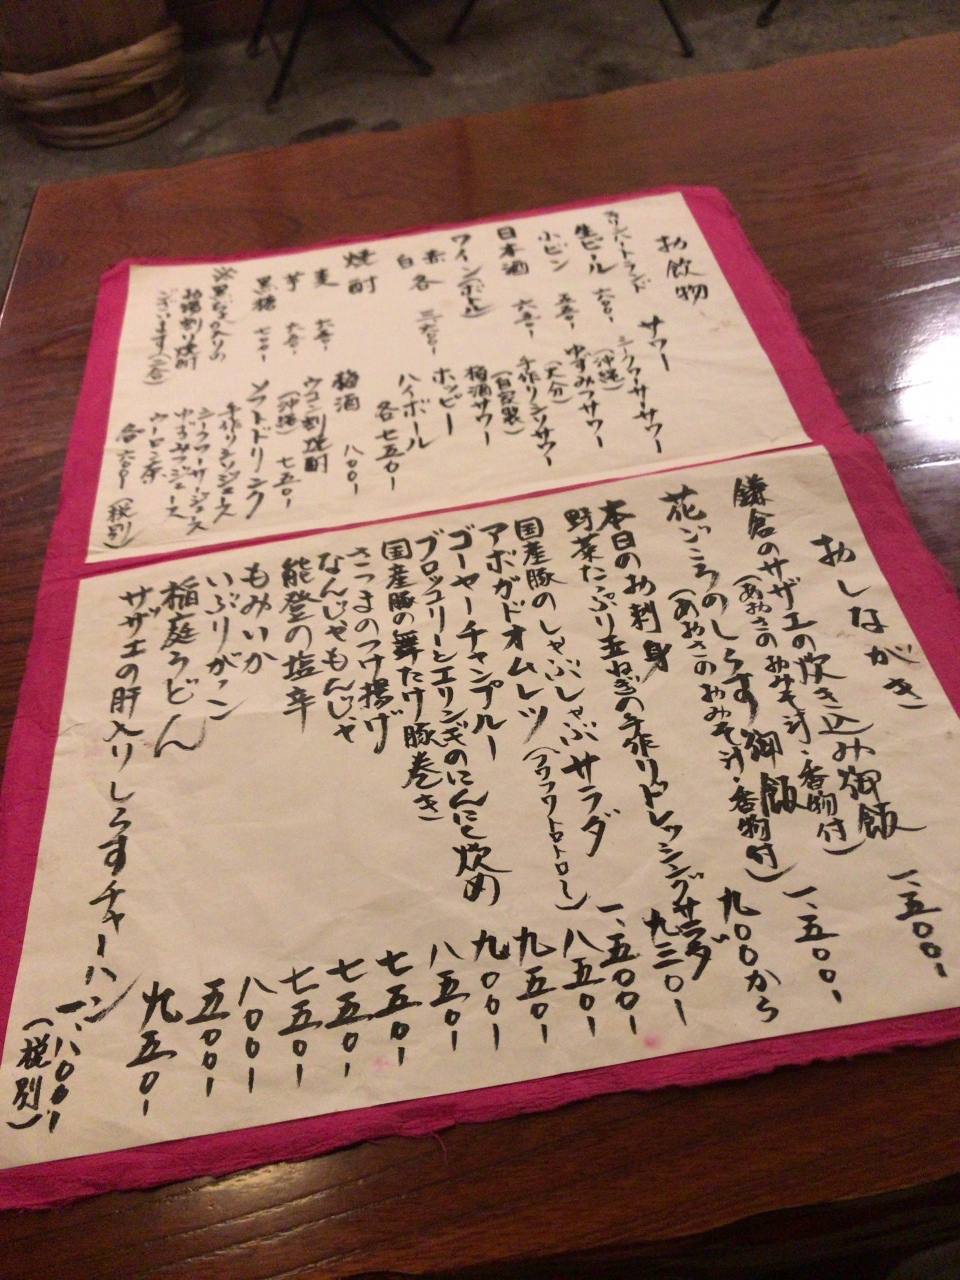 お飲物
カリンパートランド
生ビール 六〇〇-
小ビン 五五〇-
日本酒 六五〇-
ワイン(ボトル)
赤白 各 三六〇〇-
焼酎
麦 六五〇-
芋 六五〇-
黒糖 七〇〇-
お湯割り焼酎
ございます
サワー
シークワーサーサワー
(沖縄)
ゆずみつサワー
(大分)
手作りシソサワー
(自家製)
梅酒サワー
ホッピー
ハイボール
各七五〇-
梅酒 八〇〇-
ウコン割焼酎
(沖縄) 七五〇-
ソフトドリンク
手作りシソジュース
シークワーサージュース
ゆずみつジュース
ウーロン茶
各六〇〇-
(税別)
おしながき
鎌倉のサザエの炊き込み御飯 一、五〇〇-
(あおさのおみそ汁・香物付) 一、五〇〇-
花ごころのしらす御飯
(あおさのおみそ汁・香物付) 九〇〇から
本日のお刺身
野菜たっぷり玉ねぎの手作りドレッシングサラダ 九三〇-
国産豚のしゃぶしゃぶサラダ 一、五〇〇-
アボガドオムレツ(フワフワトロトロ〜) 八五〇-
ゴーヤーチャンプルー 九五〇-
ブロッコリーとエリンギのにんにく炒め 九〇〇-
国産豚の舞たけ豚巻き 八五〇-
さつまのつけ揚げ 七五〇-
なんじゃもんじゃ 七五〇-
能登の塩辛 七五〇-
もみいか 八〇〇-
いぶりがっこ 五〇〇-
稲庭うどん 九五〇-
サザエの肝入りしらすチャーハン 一、八〇〇-
(税別)